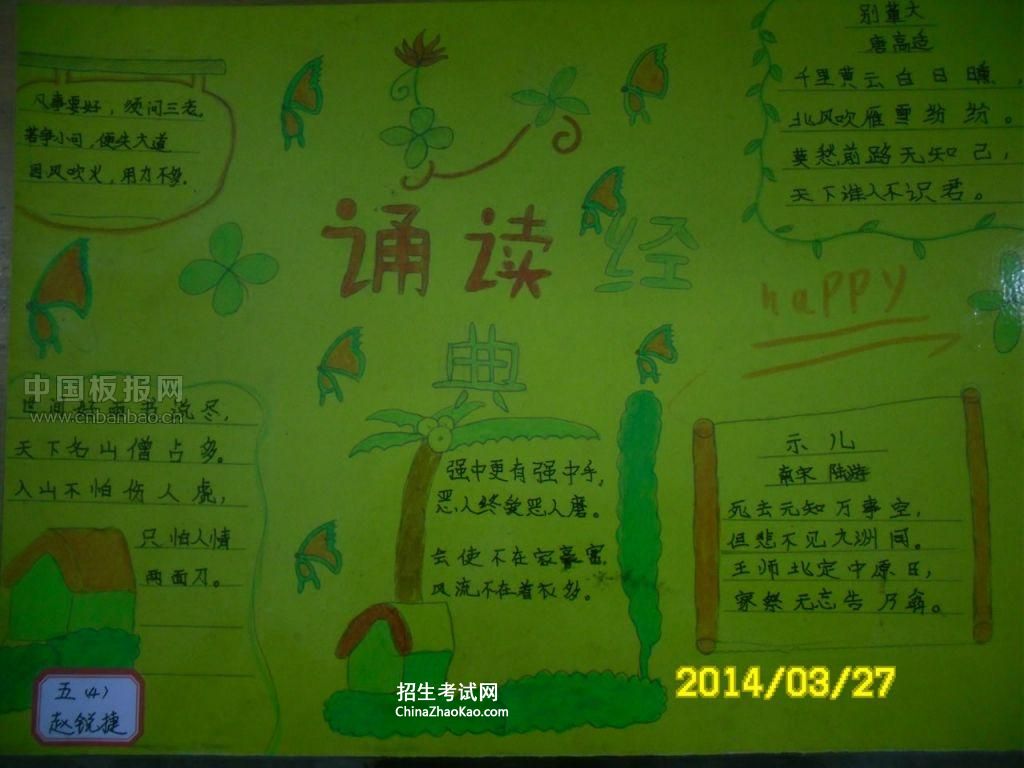 凡事要好，须问三老。
若争小可，便失大道
因风吹火，用力不多。
别董大
唐高适
千里黄云白日曛，
北风吹雁雪纷纷。
莫愁前路无知己，
天下谁人不识君。
诵读经
典
happy
中国板报网
www.cnbanbao.cn
世间好语书说尽，
天下名山僧占多。
入山不怕伤人虎，
只怕人情
两面刀。
强中更有强中手，
恶人终受恶人磨。
会使不在家豪富
风流不在着衣多。
示儿
南宋 陆游
死去元知万事空，
但悲不见九洲同。
王师北定中原日，
家祭无忘告乃翁。
五（4）
赵锐捷
招生考试网
ChinaZhaoKao.com
2014/03/27